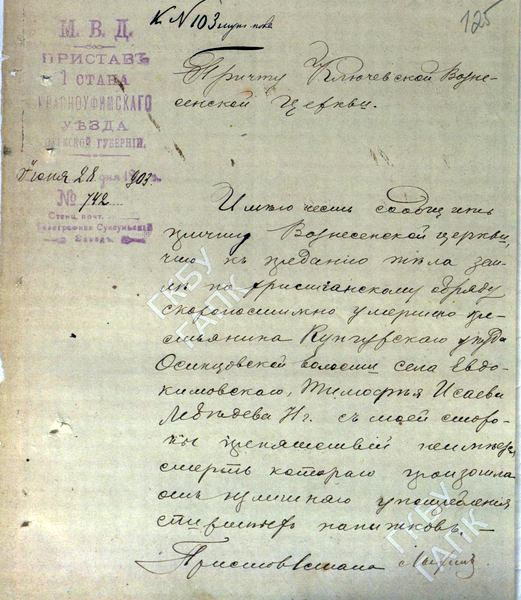 К. № 103
125
М. В. Д.
ПРИСТАВЪ
1 СТАНА
КРАСНОУФИМСКАГО
УѢЗДА
ПЕРМСКОЙ ГУБЕРНІИ.
Іюня 28 дня 1903 г.
№ 742
Станц. почт.
Телеграфная Суксуньскій
Заводъ.
Причту Ключевской Возне-
сенской Церкви.
Имѣю честь сообщить
причту Вознесенской церкви,
что къ преданію тѣла зем-
лѣ по христіанскому обряду
скоропостижно умершаго кре-
стьянина Кунгурскаго уѣзда
Осинцовской волости села Евдо-
кимовскаго, Тимофѣя Исаева
Лебедева съ моей сторо-
ны препятствій неимѣется,
смерть котораго произошла
отъ излишняго употребленія
спиртныхъ напитковъ.
Приставъ 1 стана
ГКБУ
ГАПК
ГКБУ
ГАПК
ГКБУ
ГАПК